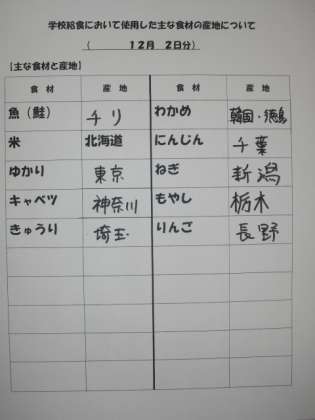 学校給食において使用した主な食材の産地について
(　　　12月　2日分)
[主な食材と産地]
食　材　産　地　食　材　産　地
魚（鮭）　チリ　わかめ　韓国・徳島
米　北海道　にんじん　千葉
ゆかり　東京　ねぎ　新潟
キャベツ　神奈川　もやし　栃木
きゅうり　埼玉　りんご　長野